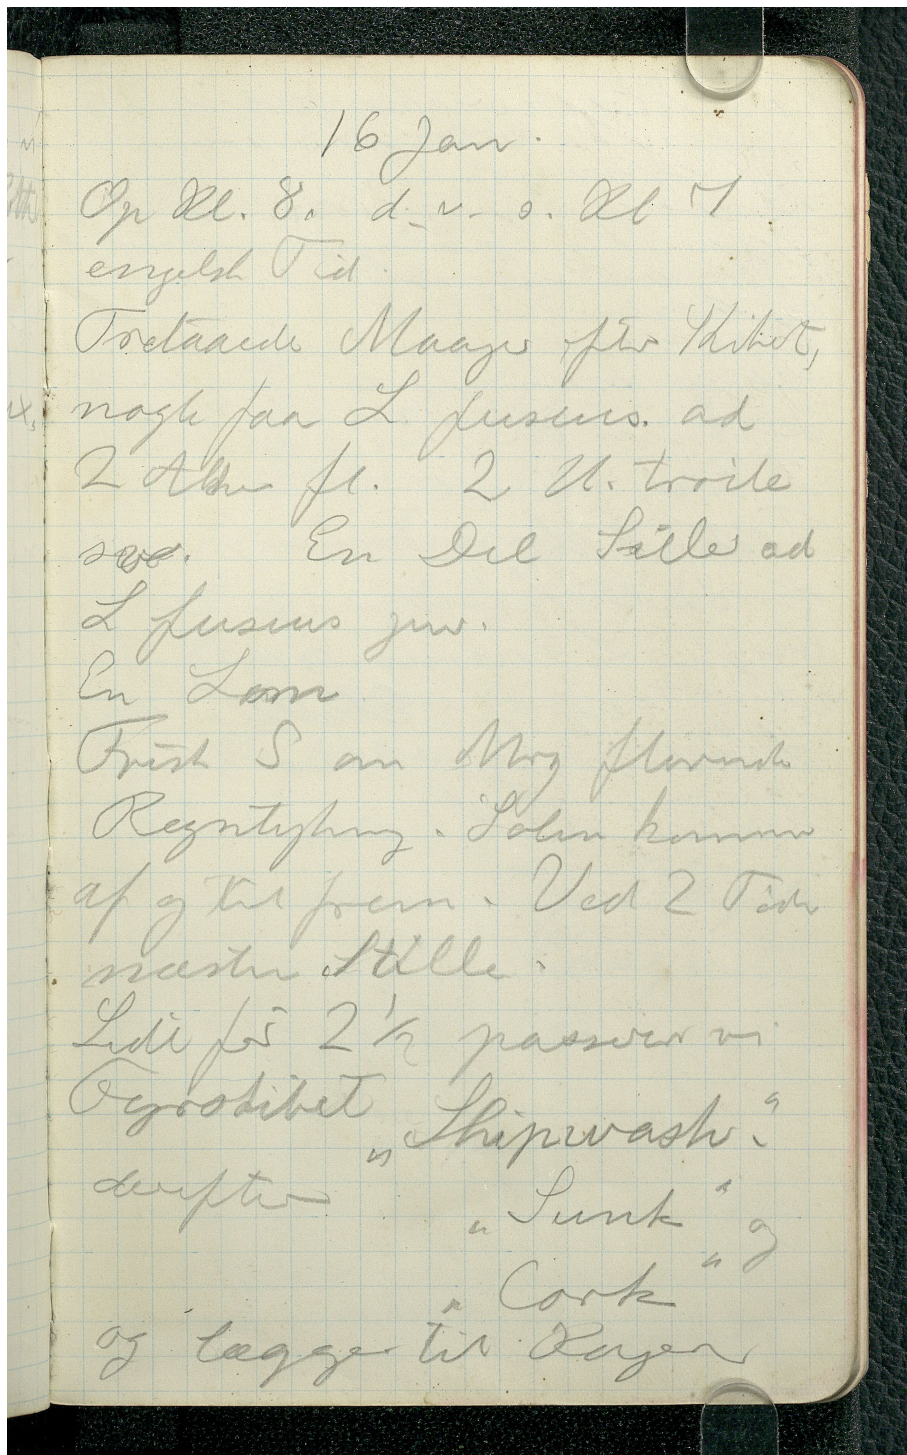 16 Jan.
Op Kl. 8. d. v. s. Kl 7
engelsk Tid.
Tretaaede Maager efter Skibet,
nogle faa L. fuscus. ad
2 fl. 2 U. troile
sv. En Del Sille ad
L fuscus juv.
En Lom
Frisk S om Mrg
Regntykning. Solen kommer
af og til frem. Ved 2 Tiden
næsten Stille.
Lidt før 2 1/2 passerer vi
Fyrskibet
„Shipwash“.
derefter
„Sunk“ og
„Cork“
og lægger til Kajen